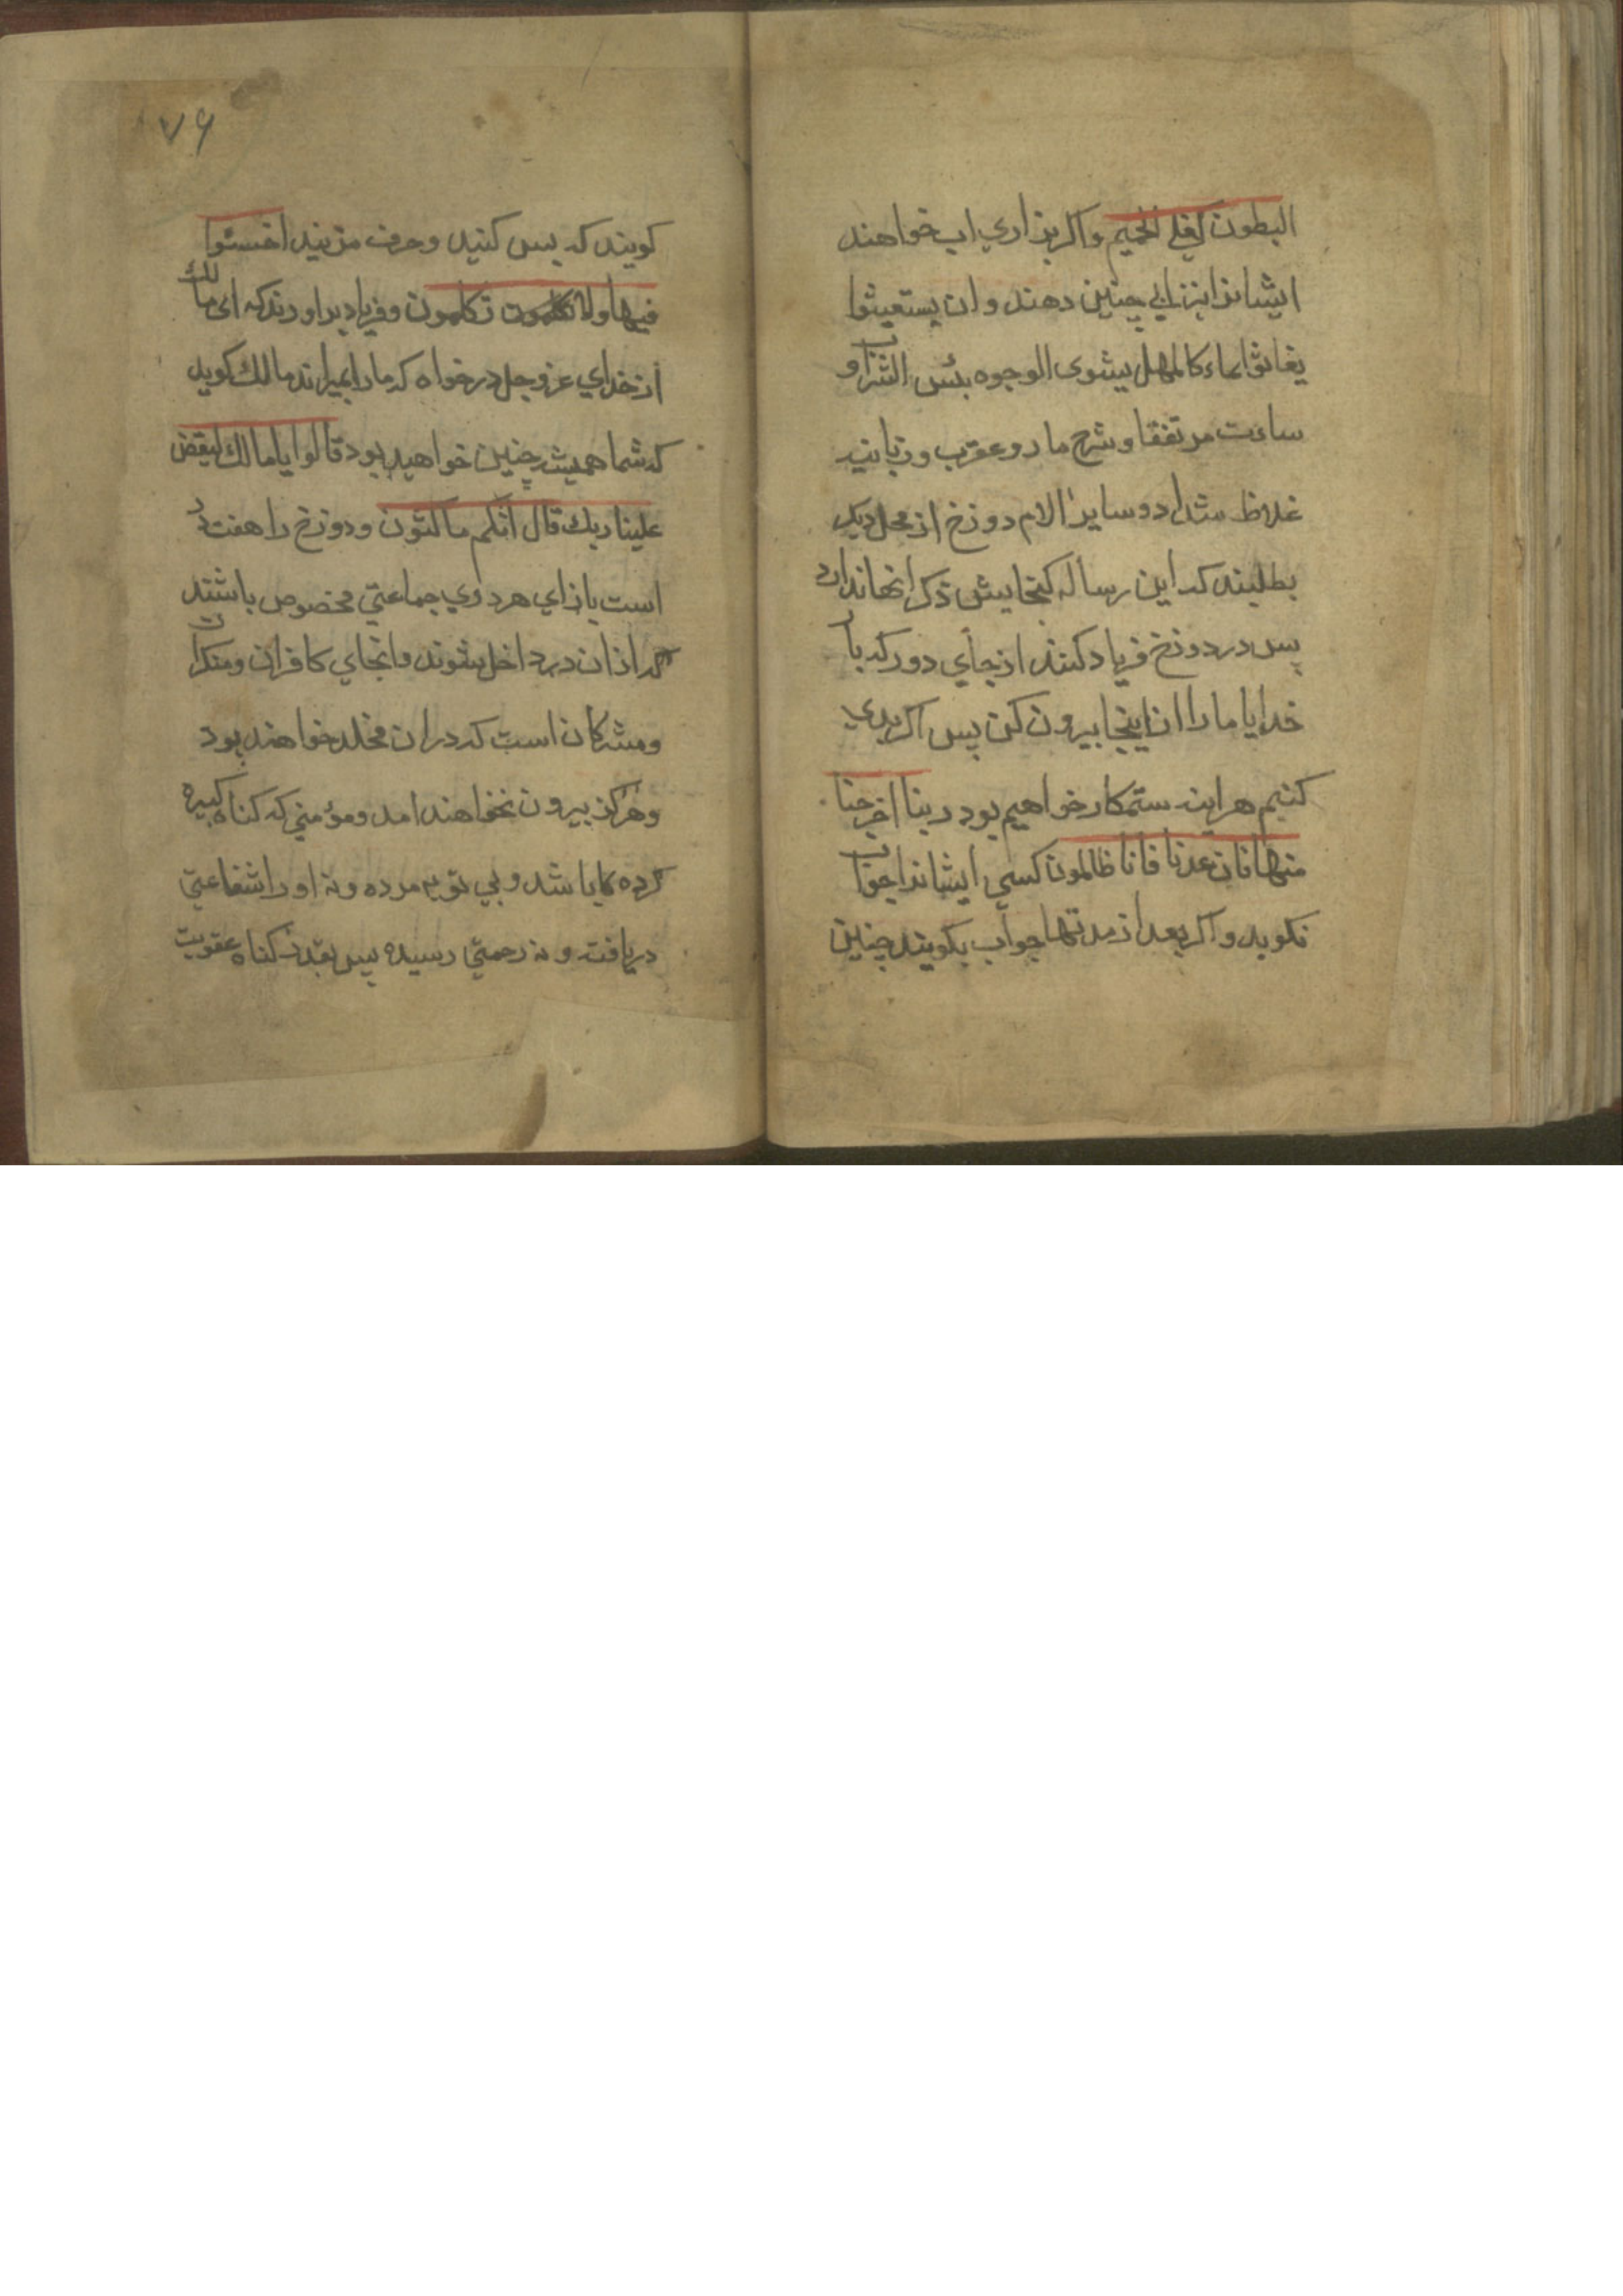 البطون كغلي الحميم واكر بزاري اب خواهند
ايشانرا بزنابي چنين دهند وان يستغيثوا
يغاثوا بماء كالمهل يشوى الوجوه بئس الشراب و
ساءت مرتفقا وشرح مار و عقرب وزبانيه
غلاظ شداد و ساير الام دوزخ از محل ديكر
بطلبند كه اين رساله كنجايش ذكر انها ندارد
پس در دوزخ فرياد كنند از جاي دور كه بار
خدايا ما را ازينجا بيرون كن پس اكر بدي
كنيم هراينه ستمكار خواهيم بود ربنا اخرجنا
منها فان عدنا فانا ظالمون كسي ايشانرا جواب
نكويد و اكر بعد از مدتها جواب بكويند چنين
٧٦
كويند كه پس كنيد و حرف مزنيد اخسئوا
فيها ولا تكلمون وفرياد براورند كه اى مالك
از خداي عز وجل درخواه كه ما را بميراند مالك كويد
كه شما هميشه چنين خواهيد بود قالوا يا مالك ليقض
علينا ربك قال انكم ماكثون و دوزخ را هفت در
است بازاي هر دري جماعتي مخصوص باشند
كه ازان در داخل شوند وانجاي كافران ومنكران
ومشركان است كه دران مخلد خواهند بود
وهركز بيرون نخواهند امد ومؤمني كه كناه كبيره
كرده باشد و بي توبه مرده ونه او را شفاعتي
دريافته ونه رحمتي رسيده پس بقدر كناه عقوبت